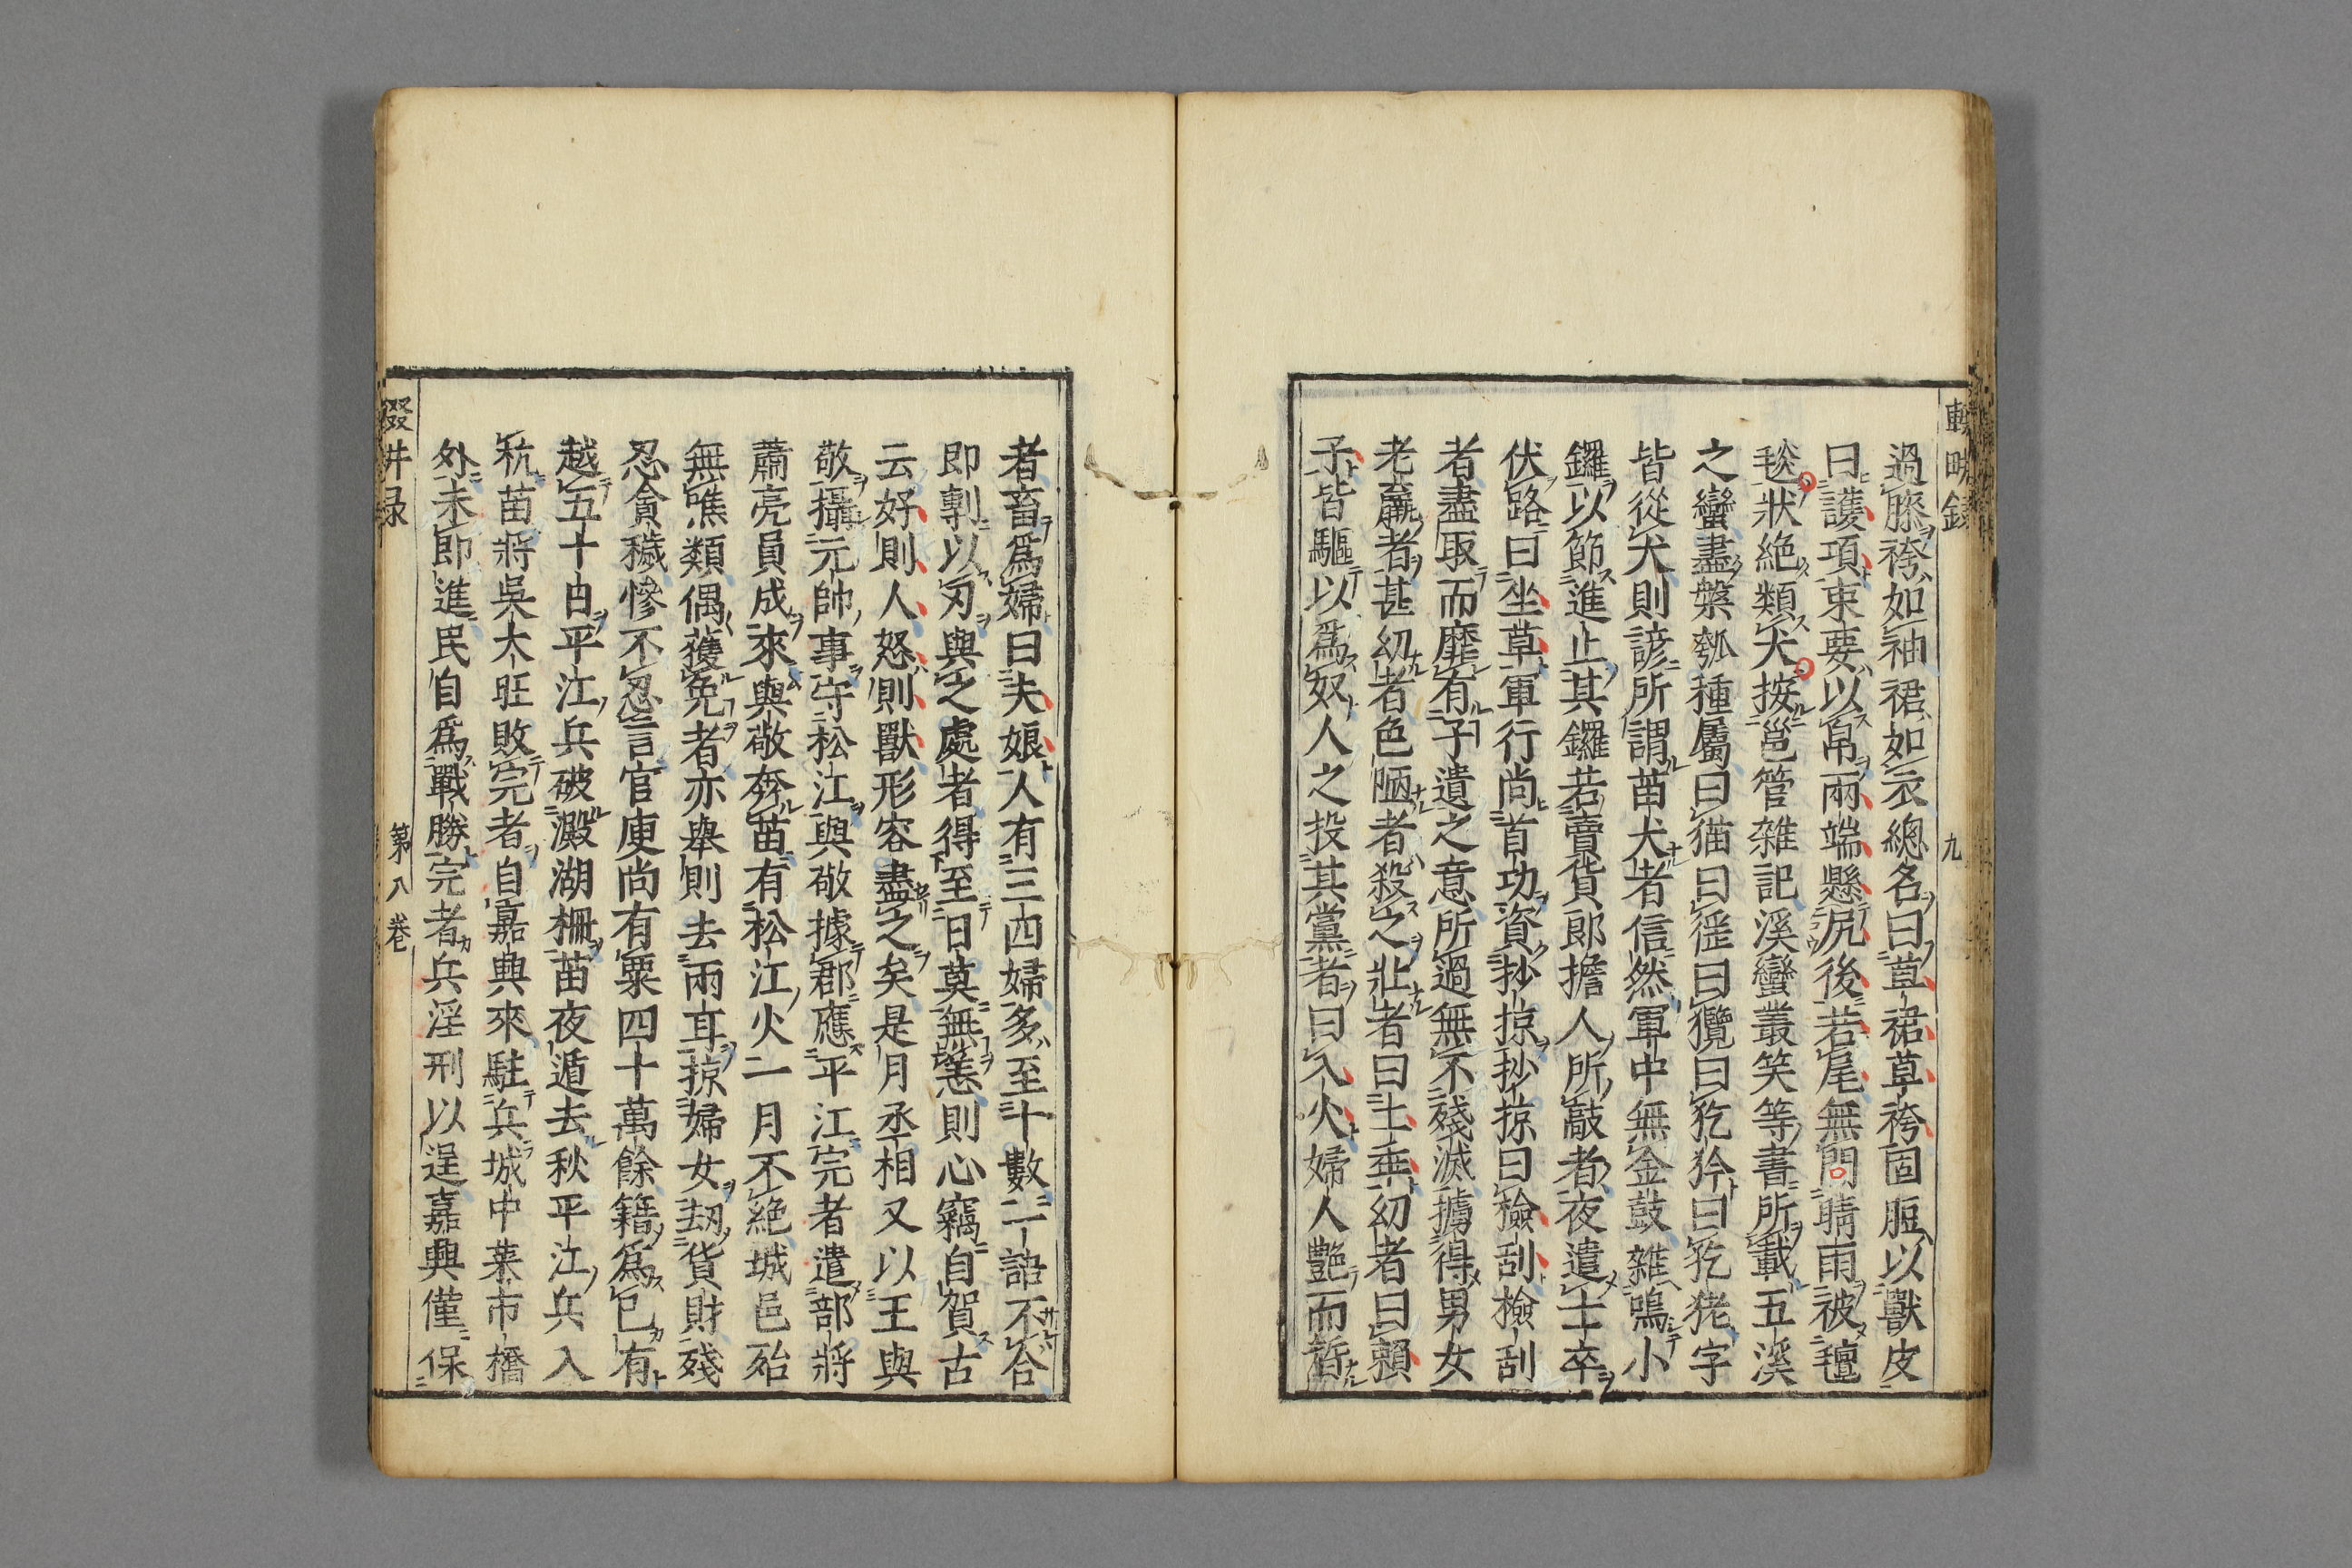 輟畊錄
九
過膝袴如袖裙如衣總名曰草裙草袴固脰以獸皮
曰護項束要以帛兩端懸尻後若尾無間晴雨被氊
毯狀絕類犬按邕管雜記溪蠻叢笑等書所載五溪
之蠻盡槃瓠種屬曰猫曰猺曰獚曰犵狑曰犵狫字
皆從犬則諺所謂苗犬者信然軍中無金鼓雜鳴小
鑼以節進止其鑼若賣貨郎擔人所敲者夜遣士卒
伏路曰坐草軍行尚首功資抄掠抄掠曰檢刮檢刮
者盡取而靡有孑遺之意所過無不殘滅擄得男女
老羸者甚幼者色陋者殺之壯者曰土乖幼者曰賴
子皆驅以爲奴人之投其黨者曰入火婦人艷而皙
者畜爲婦曰夫娘人有三四婦多至十數一語不合
即剚以刃與之處者得至日莫無恙則心竊自賀古
云好則人怒則獸形容盡之矣是月丞相又以王與
敬攝元帥事守松江與敬據郡應平江完者遣部將
蕭亮員成來與敬奔苗有松江火一月不絕城邑殆
無噍類偶獲免者亦舉則去兩耳掠婦女劫貨財殘
忍貪穢慘不忍言官庾尚有粟四十萬餘籍爲已有
越五十日平江兵破澱湖柵苗夜遁去秋平江兵入
杭苗將吳大旺敗完者自嘉興來駐兵城中菜市橋
外未即進民自爲戰勝完者兵淫刑以逞嘉興僅保
綴井录
第八卷